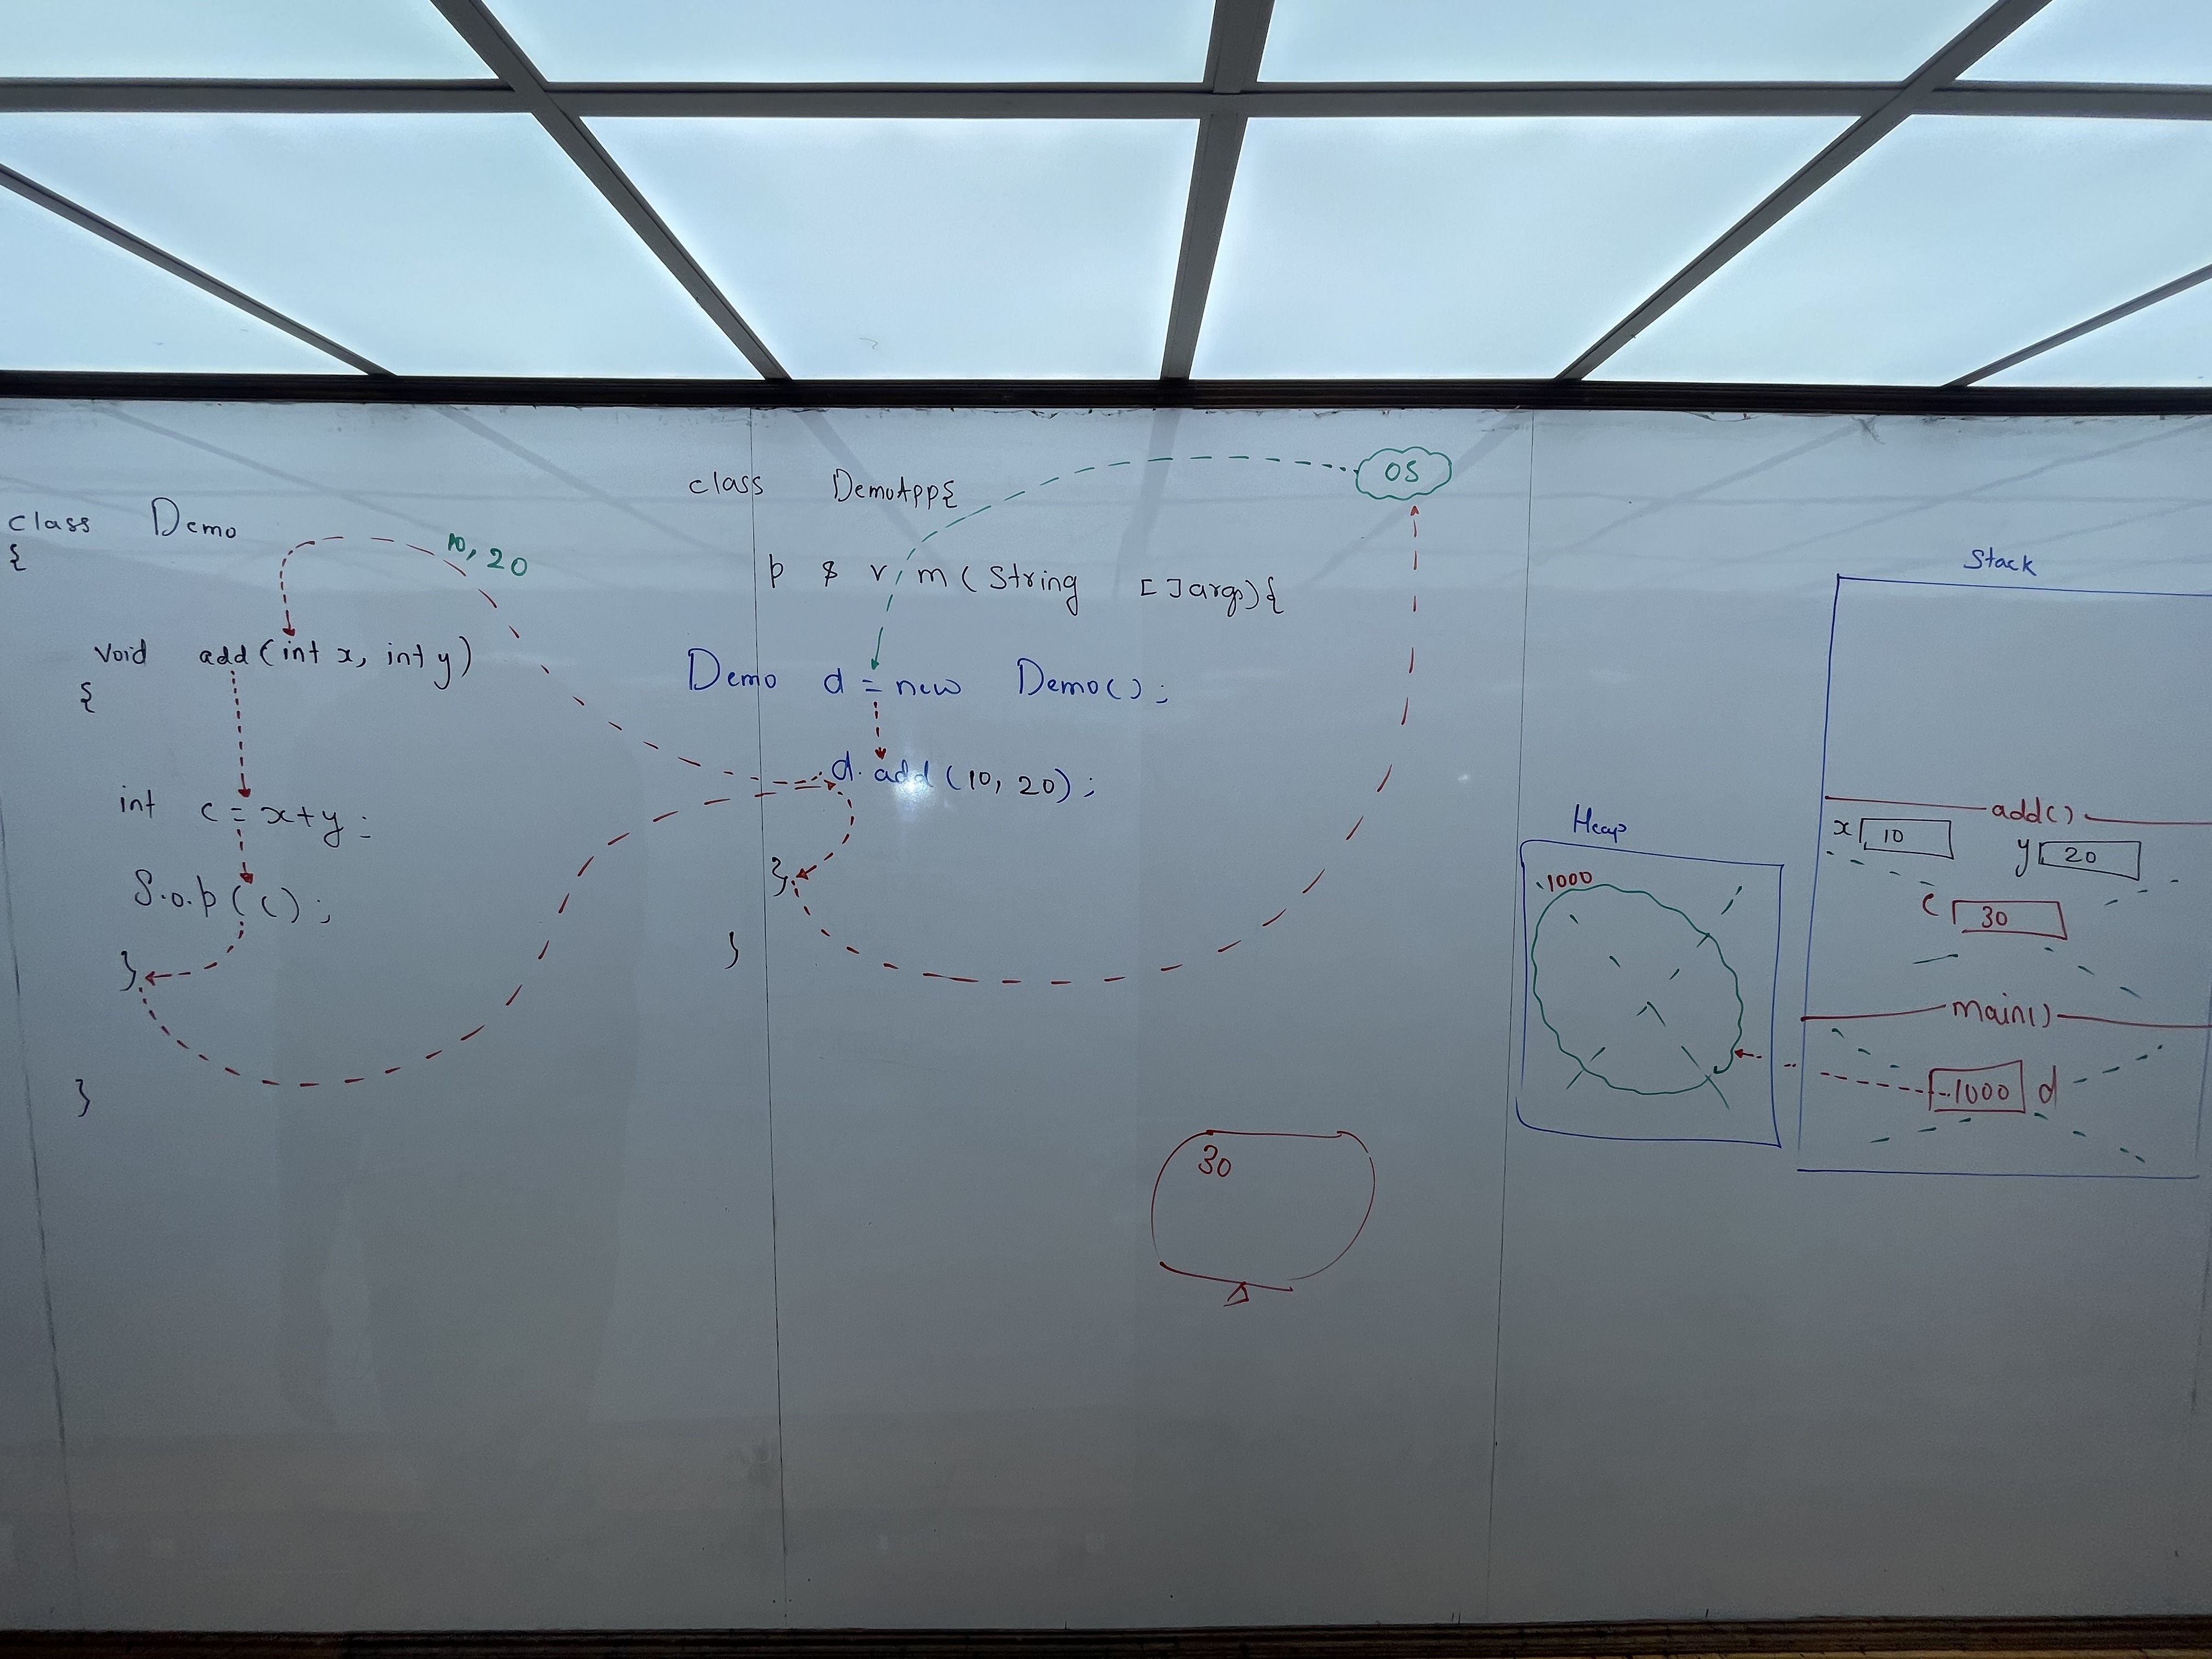 class Demo
{
void add(int x, int y)
{
int c = x+y;
S.o.p(c);
}
}
10, 20
class DemoApp{
p s v m(String []args){
Demo d = new Demo();
d.add(10, 20);
}
}
OS
30
Heap
1000
Stack
add()
x 10
y 20
c 30
main()
1000 d